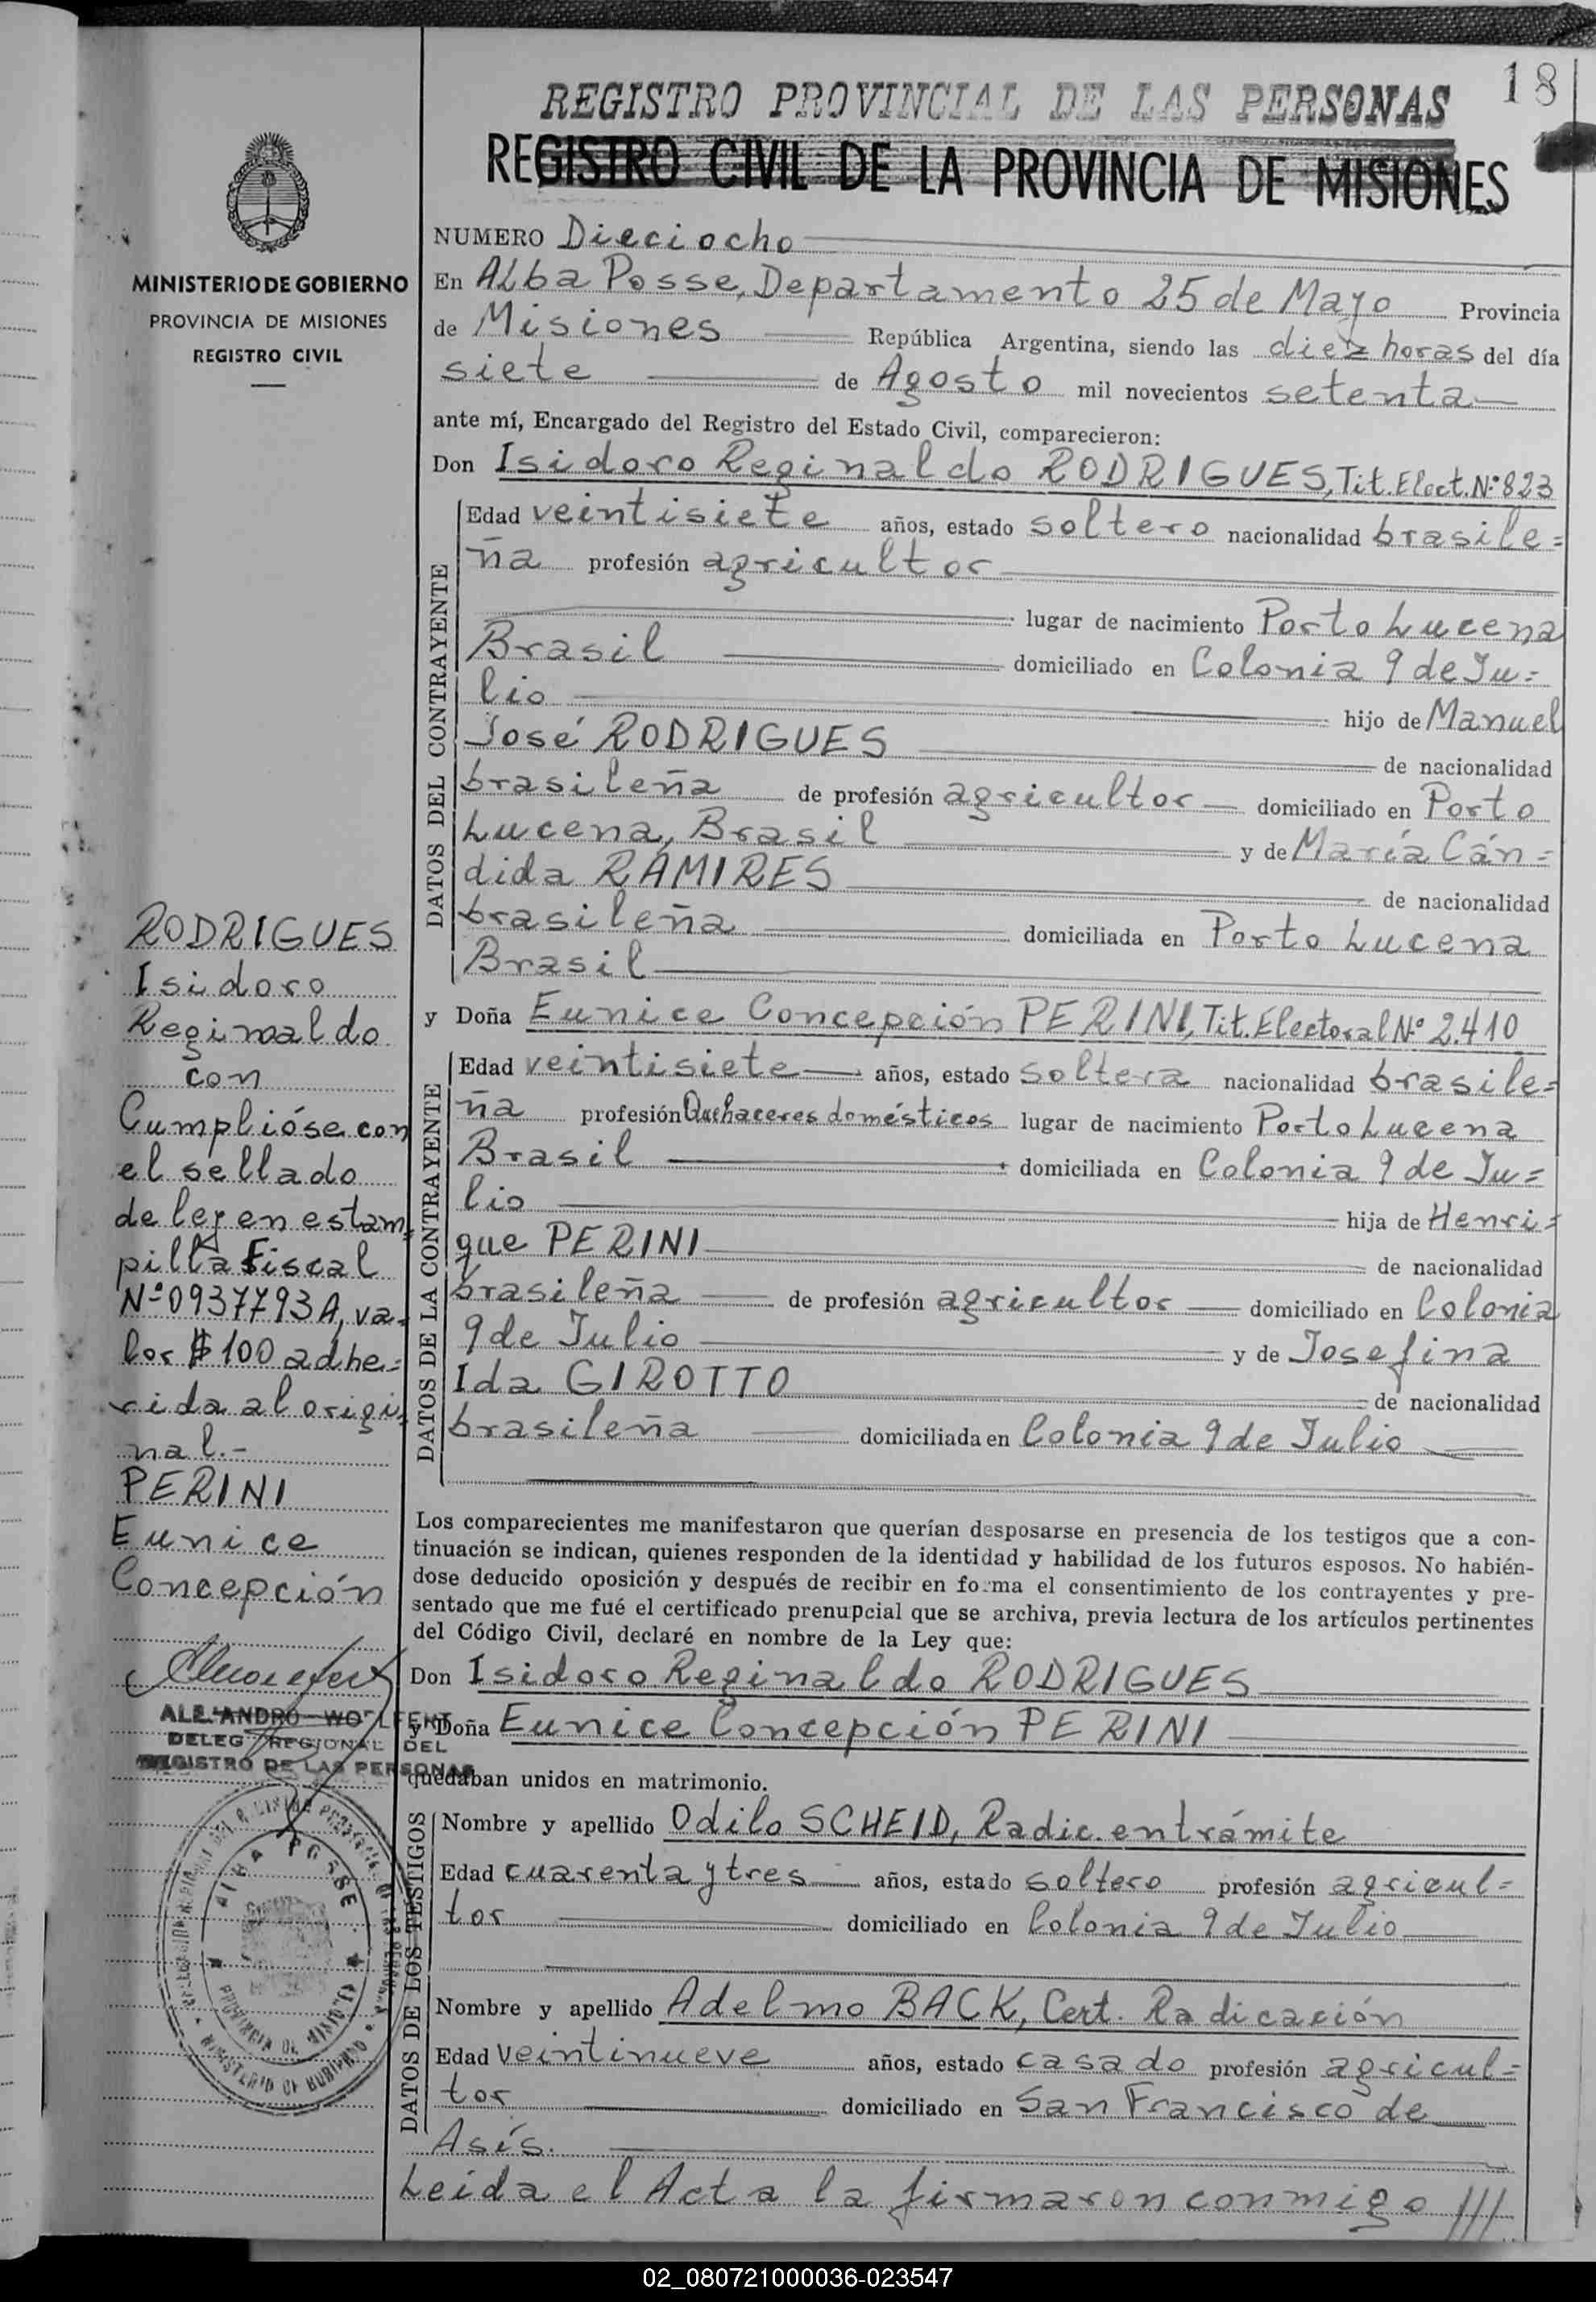 18
REGISTRO PROVINCIAL DE LAS PERSONAS
REGISTRO CIVIL DE LA PROVINCIA DE MISIONES
MINISTERIO DE GOBIERNO
PROVINCIA DE MISIONES
REGISTRO CIVIL
NUMERO Dieciocho
En Alba Posse, Departamento 25 de Mayo Provincia
de Misiones República Argentina, siendo las diez horas del día
siete de Agosto mil novecientos setenta
ante mí, Encargado del Registro del Estado Civil, comparecieron:
Don Isidoro Reginaldo RODRIGUES, Tit. Elect. Nº 823
DATOS DEL CONTRAYENTE
Edad veintisiete años, estado soltero nacionalidad brasile=
ña profesión agricultor
lugar de nacimiento Porto Lucena
Brasil domiciliado en Colonia 9 de Ju=
lio hijo de Manuel
José RODRIGUES de nacionalidad
brasileña de profesión agricultor domiciliado en Porto
Lucena, Brasil y de María Cán=
dida RAMIRES de nacionalidad
brasileña domiciliada en Porto Lucena
Brasil
y Doña Eunice Concepción PERINI, Tit. Electoral Nº 2.410
DATOS DE LA CONTRAYENTE
Edad veintisiete años, estado soltera nacionalidad brasile=
ña profesión Quehaceres domésticos lugar de nacimiento Porto Lucena
Brasil domiciliada en Colonia 9 de Ju=
lio hija de Henri=
que PERINI de nacionalidad
brasileña de profesión agricultor domiciliado en Colonia
9 de Julio y de Josefina
Ida GIROTTO de nacionalidad
brasileña domiciliada en Colonia 9 de Julio
Los comparecientes me manifestaron que querían desposarse en presencia de los testigos que a con-
tinuación se indican, quienes responden de la identidad y habilidad de los futuros esposos. No habién-
dose deducido oposición y después de recibir en forma el consentimiento de los contrayentes y pre-
sentado que me fué el certificado prenupcial que se archiva, previa lectura de los artículos pertinentes
del Código Civil, declaré en nombre de la Ley que:
Don Isidoro Reginaldo RODRIGUES
y Doña Eunice Concepción PERINI
quedaban unidos en matrimonio.
DATOS DE LOS TESTIGOS
Nombre y apellido Odilo SCHEID, Radic. en trámite
Edad cuarenta y tres años, estado soltero profesión agricul=
tor domiciliado en Colonia 9 de Julio
Nombre y apellido Adelmo BACK, Cert. Radicación
Edad veintinueve años, estado casado profesión agricul=
tor domiciliado en San Francisco de
Asís.
Leída el Acta la firmaron conmigo ///
RODRIGUES
Isidoro
Reginaldo
con
Cumplióse con
el sellado
de ley en estam=
pilla Fiscal
Nº 0937793A, va=
lor $ 100 adhe=
rida al origi=
nal.-
PERINI
Eunice
Concepción
DELEG REGIONAL DEL
REGISTRO DE LAS PERSONAS
ALBA POSSE
PROVINCIA DE MISIONES
MINISTERIO DE GOBIERNO
02_080721000036-023547